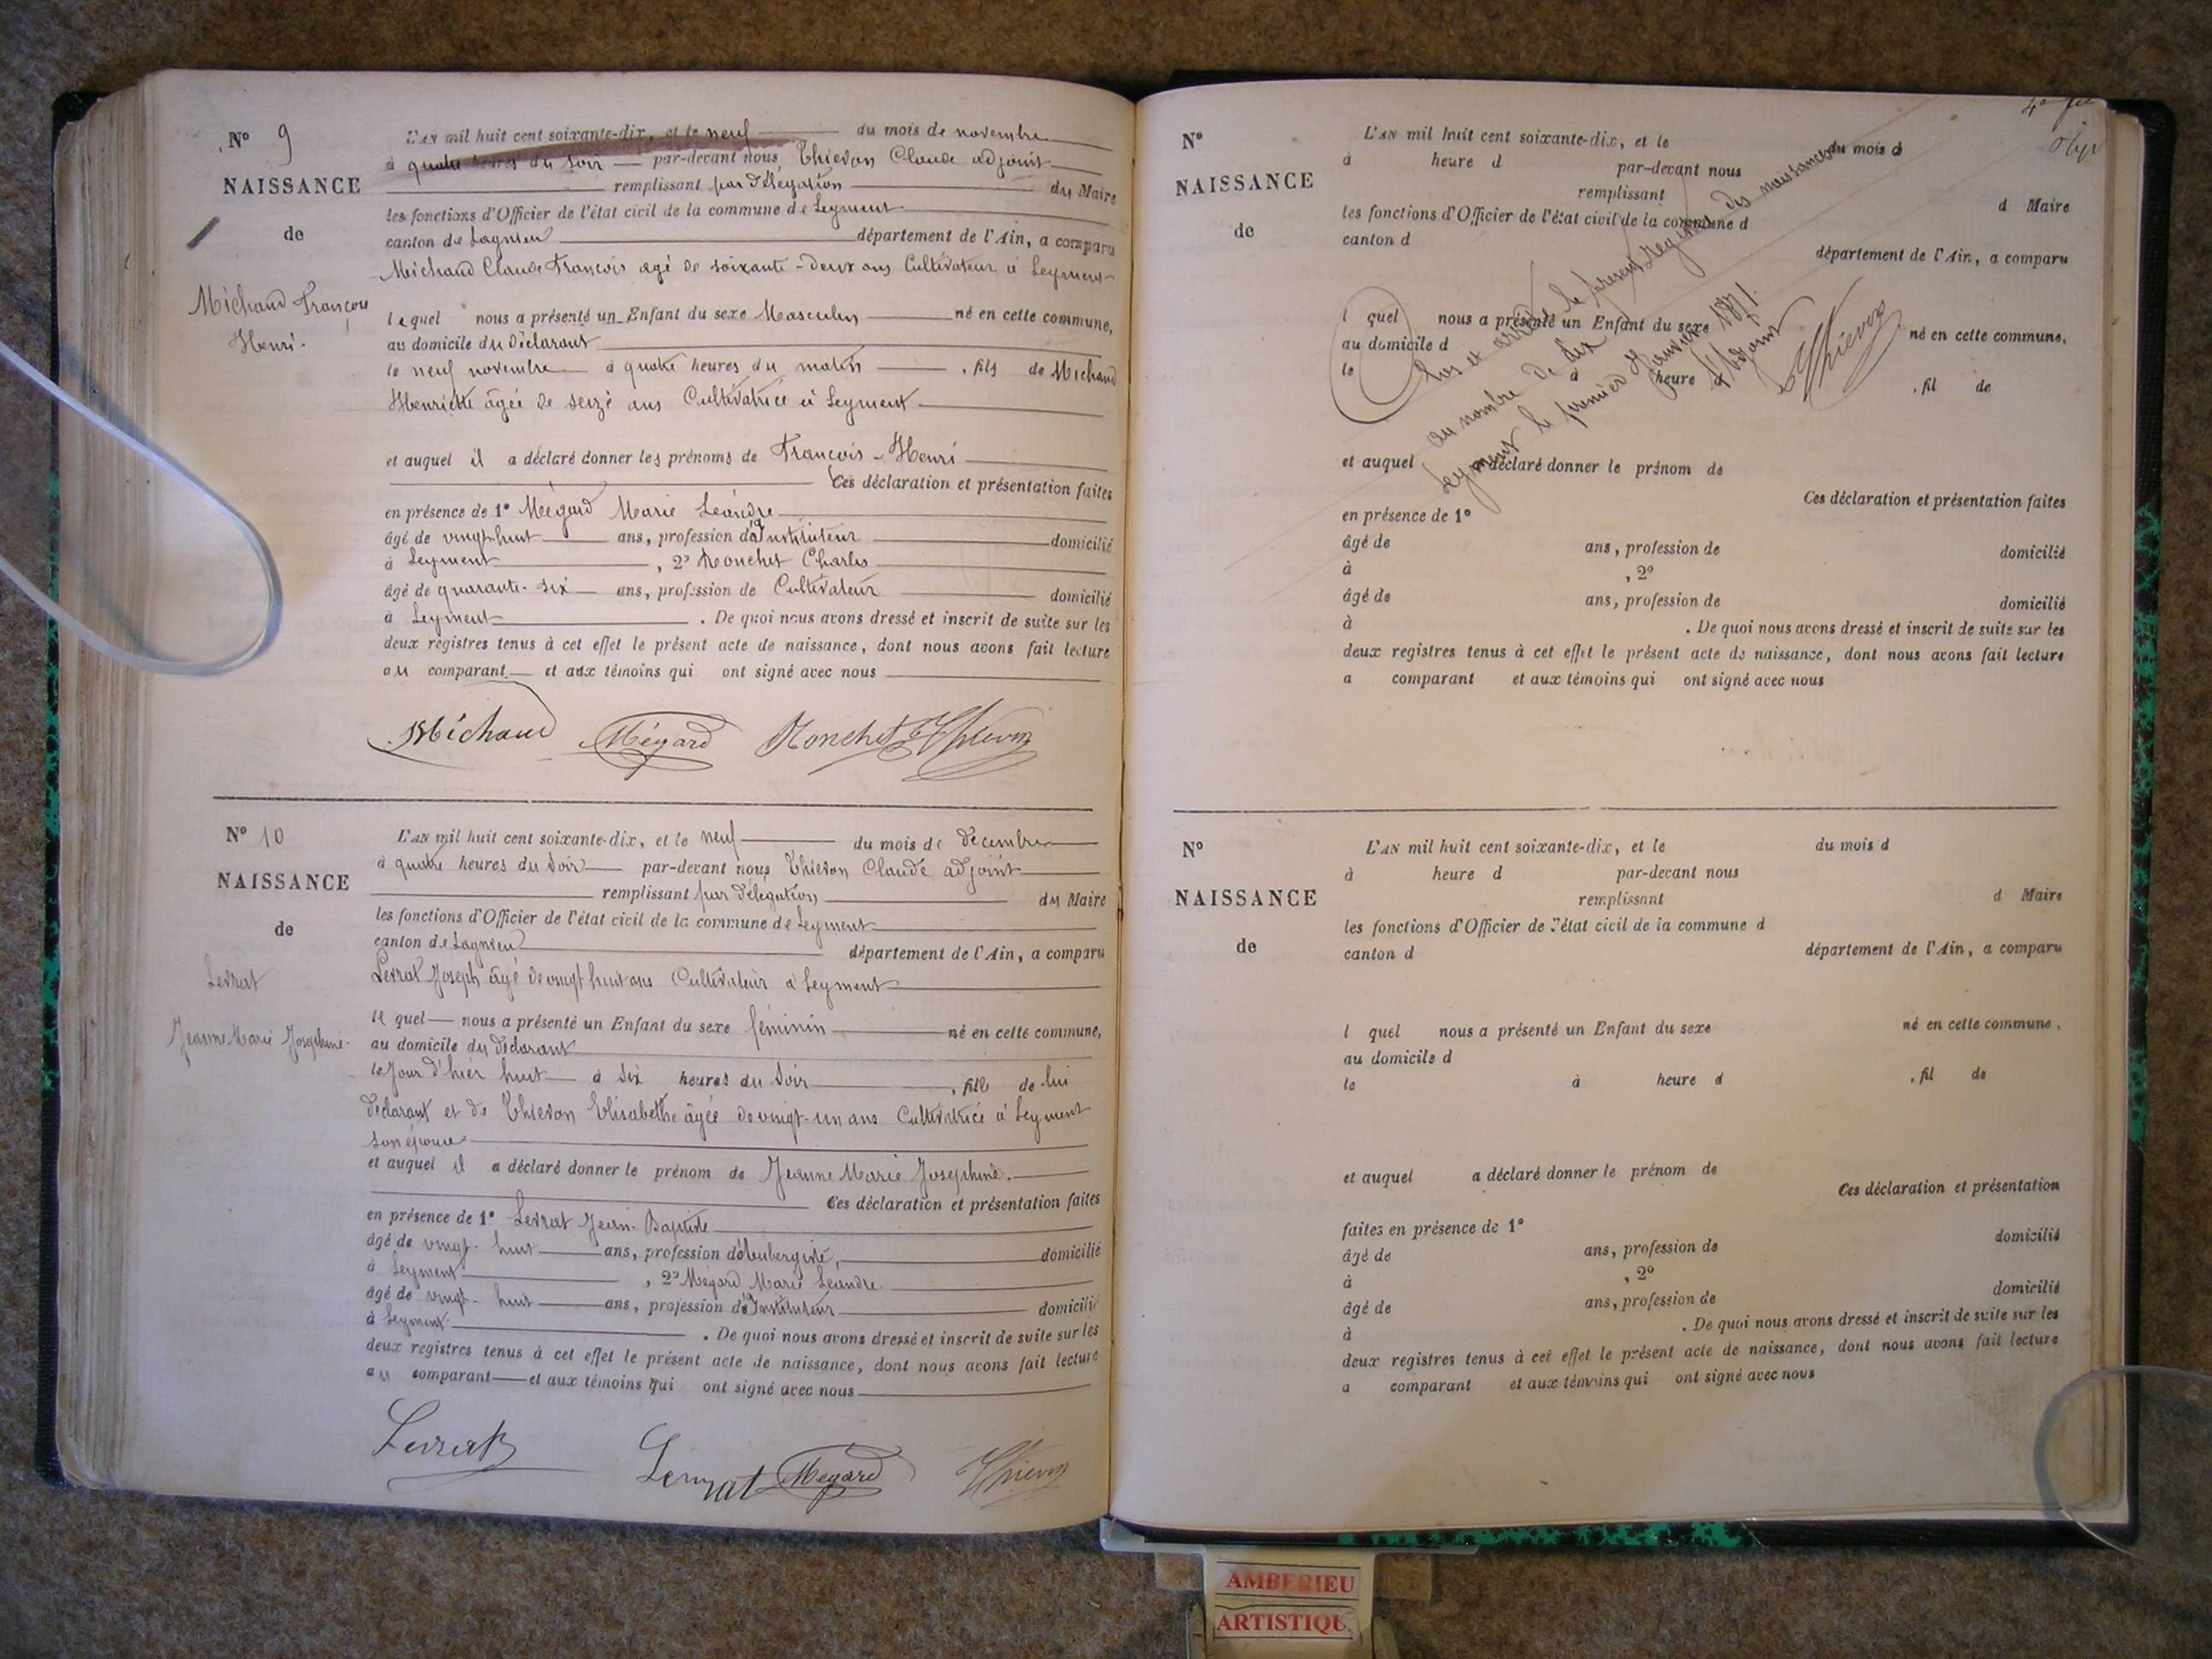 N° 9
NAISSANCE
de
Michaud François
Henri.
L'AN mil huit cent soixante-dix, et le neuf du mois de novembre
à quatre heures du soir par-devant nous Thievon Claude adjoint
remplissant par délégation du Maire
les fonctions d'Officier de l'état civil de la commune de Leyment
canton de Lagnieu département de l'Ain, a comparu
Michaud Claude François agé de soixante-deux ans Cultivateur à Leyment
lequel nous a présenté un Enfant du sexe Masculin né en cette commune,
au domicile du Déclarant
le neuf novembre à quatre heures du matin , fils de Michaud
Henriette âgée de seize ans Cultivatrice à Leyment
et auquel il a déclaré donner les prénoms de François-Henri
Ces déclaration et présentation faites
en présence de 1° Mégard Marie Léandre
âgé de vingt-huit ans, profession d'Instituteur domicilié
à Leyment , 2° Ronchet Charles
âgé de quarante-six ans, profession de Cultivateur domicilié
à Leyment . De quoi nous avons dressé et inscrit de suite sur les
deux registres tenus à cet effet le présent acte de naissance, dont nous avons fait lecture
au comparant et aux témoins qui ont signé avec nous
Michaud Mégard Ronchet Thievon
N° 10
NAISSANCE
de
Levrat
Jeanne Marie Josephine
L'AN mil huit cent soixante-dix, et le neuf du mois de décembre
à quatre heures du soir par-devant nous Thievon Claude adjoint
remplissant par délégation du Maire
les fonctions d'Officier de l'état civil de la commune de Leyment
canton de Lagnieu département de l'Ain, a comparu
Levrat Joseph âgé de vingt huit ans Cultivateur à Leyment
le quel nous a présenté un Enfant du sexe féminin né en cette commune,
au domicile du déclarant
le Jour d'hier huit à six heures du soir , fille de lui
déclarant et de Thievon Elisabethe âgée de vingt-un ans Cultivatrice à Leyment
son épouse
et auquel il a déclaré donner le prénom de Jeanne Marie Josephine.
Ces déclaration et présentation faites
en présence de 1° Levrat Jean-Baptiste
âgé de vingt-huit ans, profession d'Aubergiste, domicilié
à Leyment , 2° Mégard Marie Léandre
âgé de vingt-huit ans, profession d'Instituteur domicilié
à Leyment . De quoi nous avons dressé et inscrit de suite sur les
deux registres tenus à cet effet le présent acte de naissance, dont nous avons fait lecture
au comparant et aux témoins qui ont signé avec nous
Levrat Levrat Megard Thievon
N°
NAISSANCE
de
L'AN mil huit cent soixante-dix, et le du mois d
à heure d par-devant nous
remplissant
d Maire
les fonctions d'Officier de l'état civil de la commune d
canton d
département de l'Ain, a comparu
l quel nous a présenté un Enfant du sexe né en cette commune,
au domicile d
le à heure d , fil de
Clos et arrêté le présent Registre des naissances
au nombre de dix
Leyment le premier Janvier 1871.
l'adjoint
Thievon
et auquel a déclaré donner le prénom de
Ces déclaration et présentation faites
en présence de 1°
âgé de ans, profession de domicilié
à , 2°
âgé de ans, profession de domicilié
à . De quoi nous avons dressé et inscrit de suite sur les
deux registres tenus à cet effet le présent acte de naissance, dont nous avons fait lecture
a comparant et aux témoins qui ont signé avec nous
N°
NAISSANCE
de
L'AN mil huit cent soixante-dix, et le du mois d
à heure d par-devant nous
remplissant d Maire
les fonctions d'Officier de l'état civil de la commune d
canton d département de l'Ain, a comparu
l quel nous a présenté un Enfant du sexe né en cette commune,
au domicile d
le à heure d , fil de
et auquel a déclaré donner le prénom de
Ces déclaration et présentation
faites en présence de 1°
âgé de ans, profession de domicilié
à , 2°
âgé de ans, profession de domicilié
à . De quoi nous avons dressé et inscrit de suite sur les
deux registres tenus à cet effet le présent acte de naissance, dont nous avons fait lecture
a comparant et aux témoins qui ont signé avec nous
AMBERIEU
ARTISTIQU